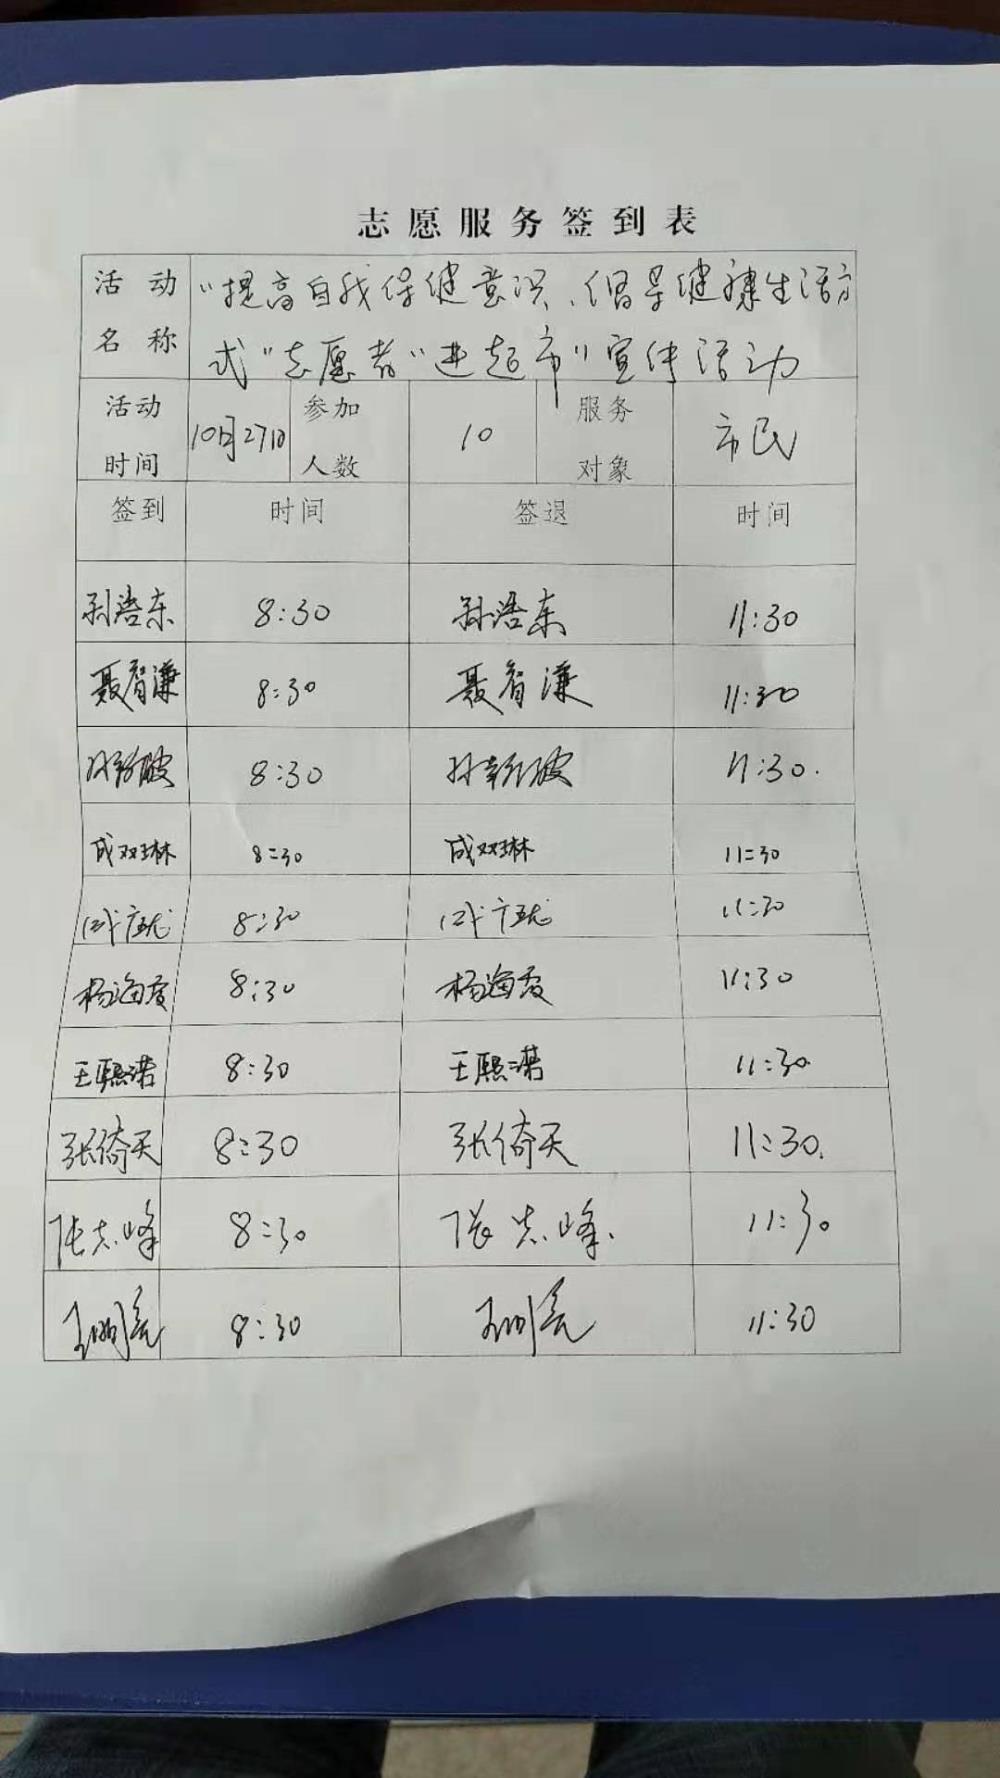 志愿服务签到表
活动名称 "提高自我保健意识、倡导健康生活方
式"志愿者"进超市"宣传活动
活动时间 10月27日 参加人数 10 服务对象 市民
签到 时间 签退 时间
孙浩东 8:30 孙浩东 11:30
聂智谦 8:30 聂智谦 11:30
8:30 11:30.
成双琳 8:30 成双琳 11:30
8:30 11:30
杨海霞 8:30 杨海霞 11:30
王熙诺 8:30 王熙诺 11:30
张倚天 8:30 张倚天 11:30.
张志峰 8:30 张志峰. 11:30
8:30 11:30